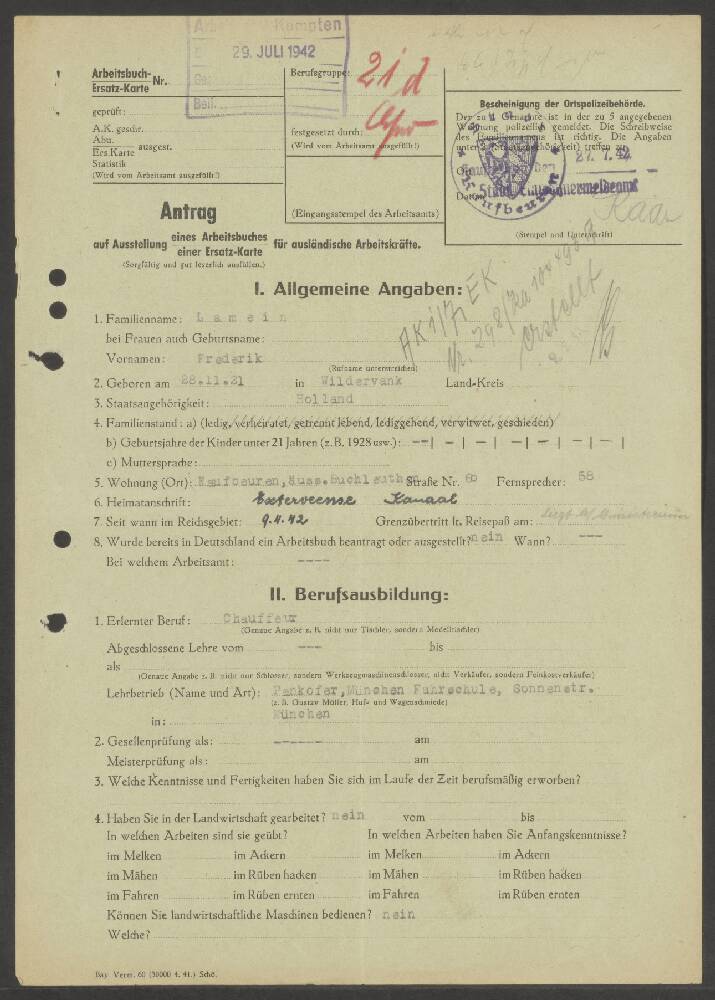 Kempten
29. JULI 1942
Arbeitsbuch- Nr.
Ersatz-Karte
geprüft:
A.K. geschr.
Abu. ausgest.
Ers.Karte
Statistik
(Wird vom Arbeitsamt ausgefüllt!)
Berufsgruppe: 21d
festgesetzt durch:
(Wird vom Arbeitsamt ausgefüllt!)
(Eingangsstempel des Arbeitsamts)
Bescheinigung der Ortspolizeibehörde.
Der zu 1 Genannte ist in der zu 5 angegebenen
Wohnung polizeilich gemeldet. Die Schreibweise
des Familiennamens ist richtig. Die Angaben
unter 3 (Staatsangehörigkeit) treffen zu.
27. 7. 42
Stadt. Einwohnermeldeamt
Datum
Kaufbeuren
(Stempel und Unterschrift)
Antrag
auf Ausstellung eines Arbeitsbuches / einer Ersatz-Karte für ausländische Arbeitskräfte.
(Sorgfältig und gut leserlich ausfüllen.)
I. Allgemeine Angaben:
erstellt
1. Familienname: Lamein
bei Frauen auch Geburtsname:
Vornamen: Frederik
(Rufname unterstreichen)
2. Geboren am 28.11.21 in Wildervank Land-Kreis
3. Staatsangehörigkeit: Holland
4. Familienstand: a) (ledig, verheiratet, getrennt lebend, lediggehend, verwitwet, geschieden)
b) Geburtsjahre der Kinder unter 21 Jahren (z. B. 1928 usw.): --| - | - | - | - | - |
c) Muttersprache:
5. Wohnung (Ort): Kaufbeuren, Äuss. Buchleuthen Straße Nr. 60 Fernsprecher: 58
6. Heimatanschrift: Exterveense Kanaal
7. Seit wann im Reichsgebiet: 9.4.42 Grenzübertritt lt. Reisepaß am:
8. Wurde bereits in Deutschland ein Arbeitsbuch beantragt oder ausgestellt? nein Wann? ---
Bei welchem Arbeitsamt: ----
II. Berufsausbildung:
1. Erlernter Beruf: Chauffeur
(Genaue Angabe z. B. nicht nur Tischler, sondern Modelltischler)
Abgeschlossene Lehre vom --- bis
als
(Genaue Angabe z. B. nicht nur Schlosser, sondern Werkzeugmaschinenschlosser, nicht Verkäufer, sondern Feinkostverkäufer)
Lehrbetrieb (Name und Art): Penkofer, München Fahrschule, Sonnenstr.
(z. B. Gustav Müller, Huf- und Wagenschmiede)
in: München
2. Gesellenprüfung als: ------ am
Meisterprüfung als: am
3. Welche Kenntnisse und Fertigkeiten haben Sie sich im Laufe der Zeit berufsmäßig erworben?
4. Haben Sie in der Landwirtschaft gearbeitet? nein vom bis
In welchen Arbeiten sind sie geübt? In welchen Arbeiten haben Sie Anfangskenntnisse?
im Melken im Ackern im Melken im Ackern
im Mähen im Rüben hacken im Mähen im Rüben hacken
im Fahren im Rüben ernten im Fahren im Rüben ernten
Können Sie landwirtschaftliche Maschinen bedienen? nein
Welche?
Bay. Verm. 60 (50000 4. 41.) Schö.